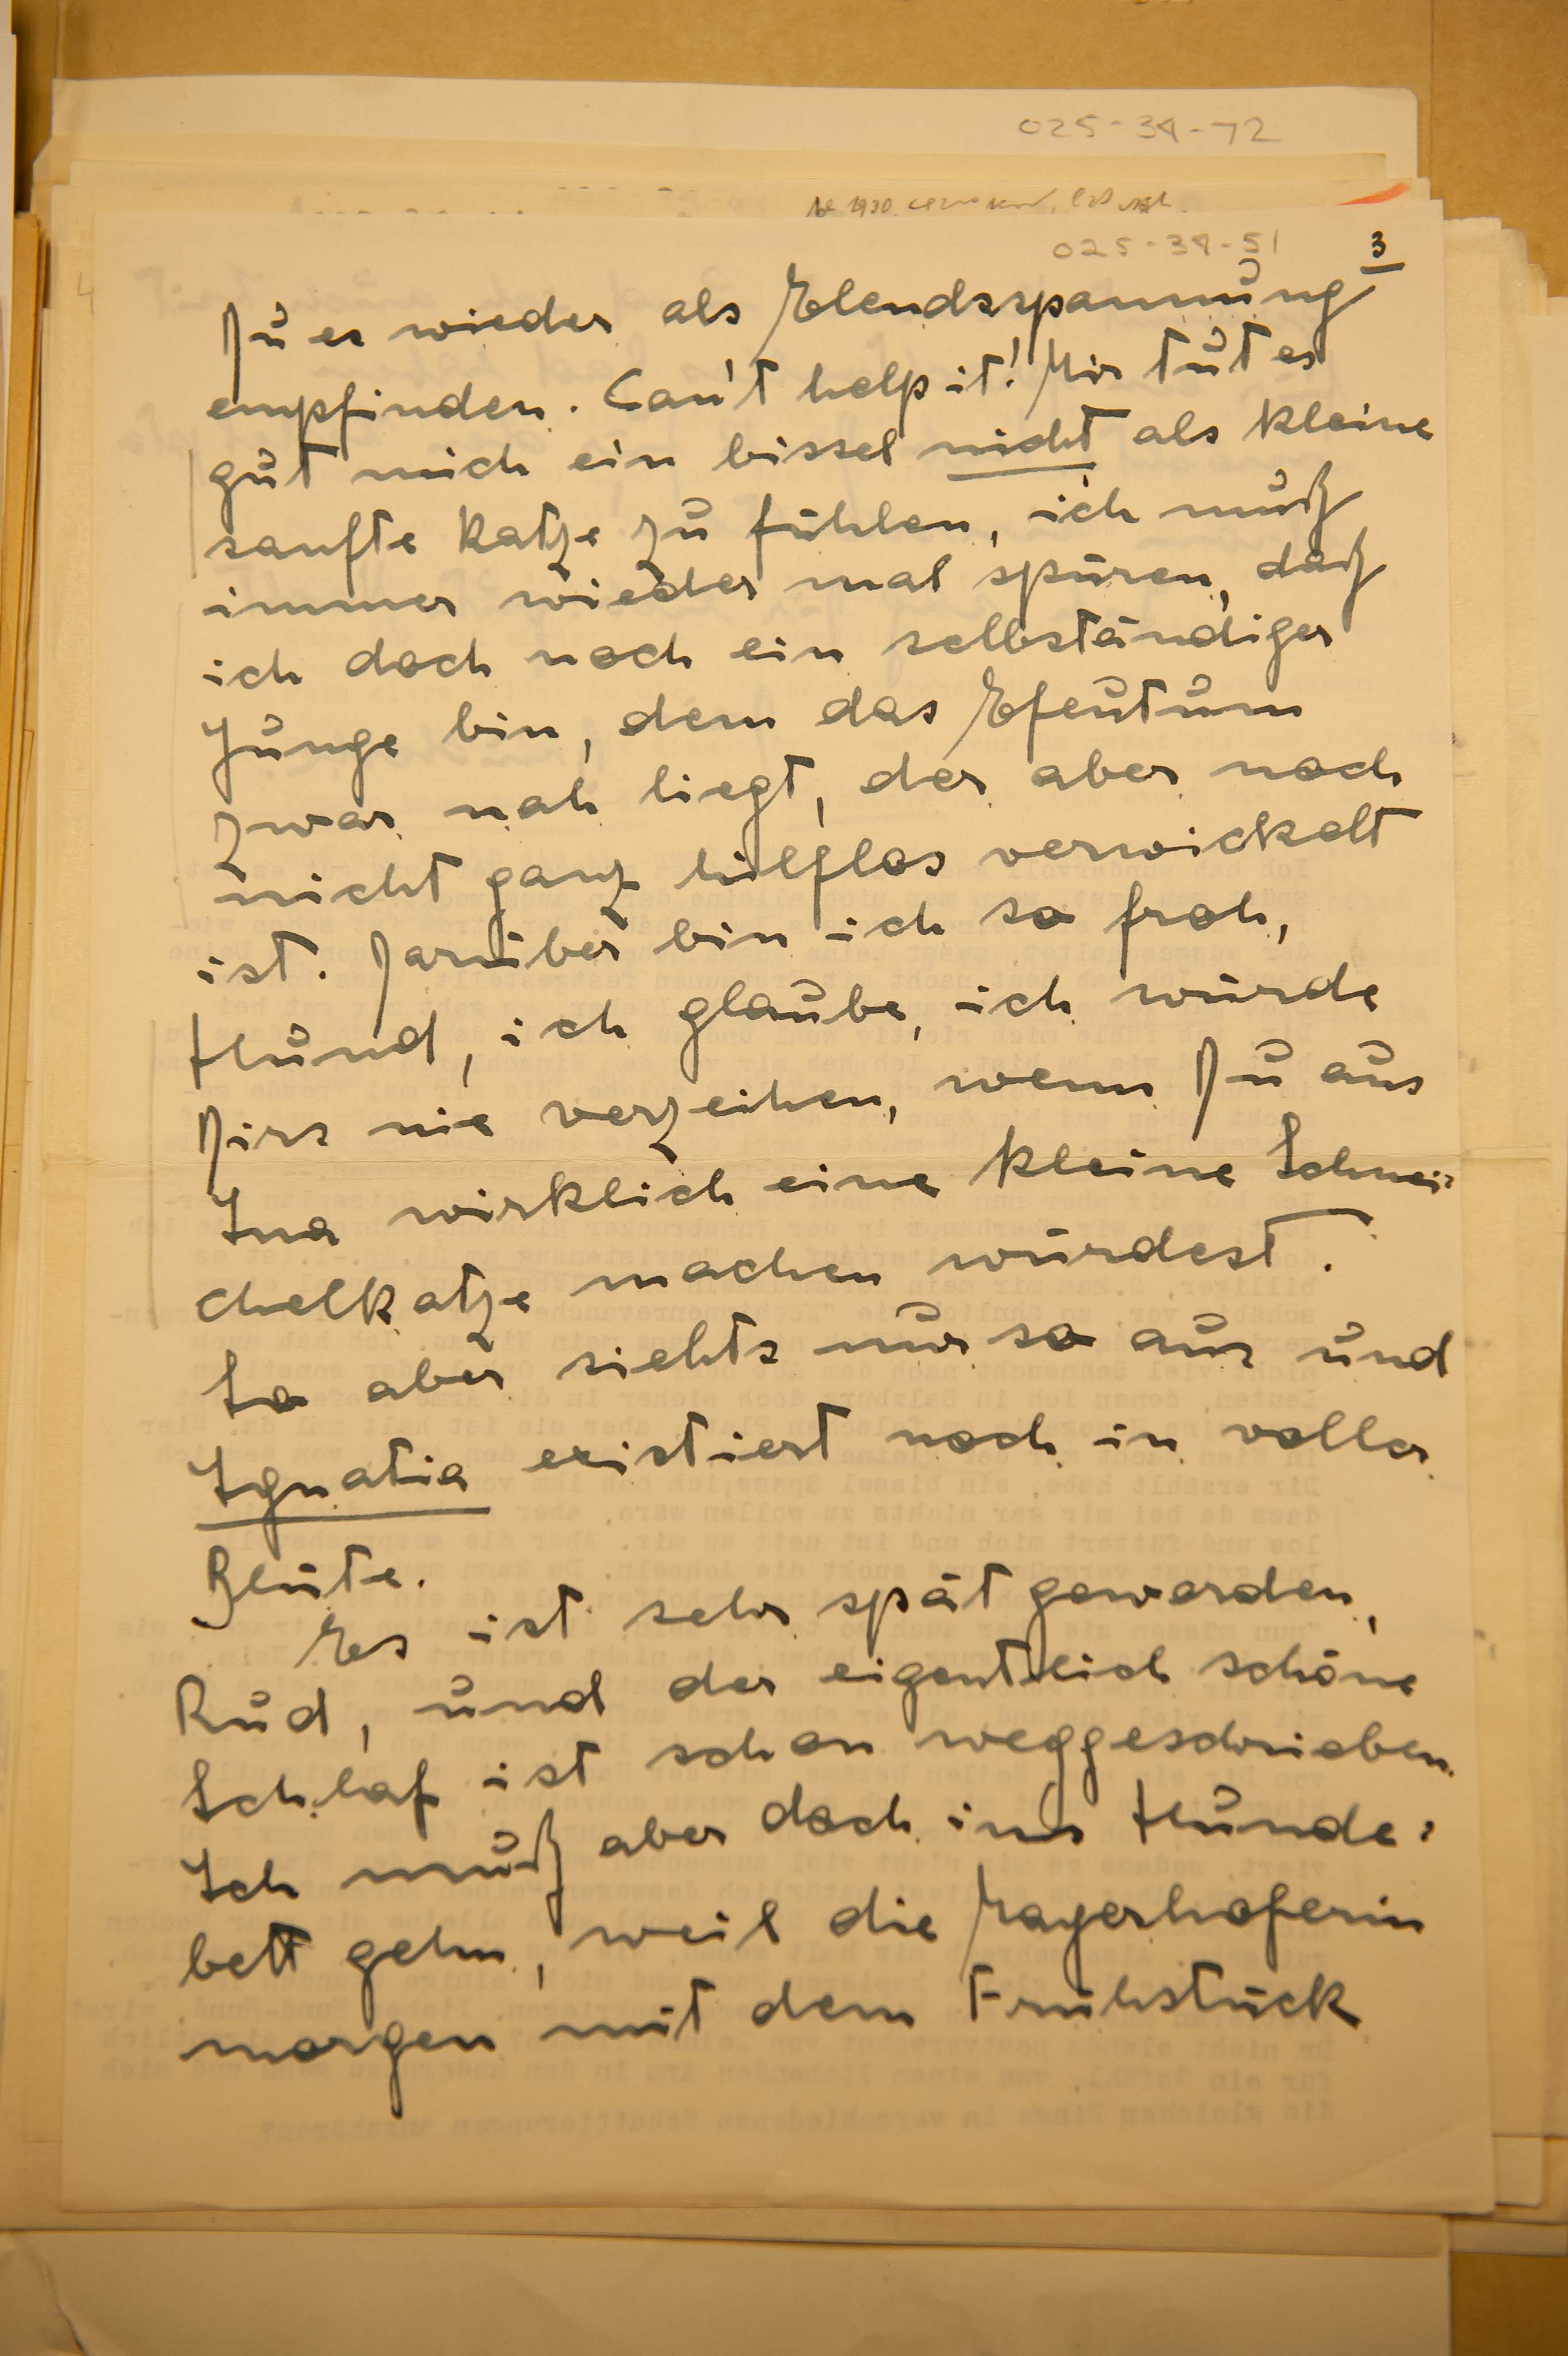 025-34-72
025-34-51
3
Du es wieder als Elendsspannung
empfinden. Can't help it! Mir tut es
gut mich ein bissel nicht als kleine
sanfte Katze zu fühlen, ich muß
immer wieder mal spüren, daß
ich doch noch ein selbständiger
Junge bin, dem das Efeutum
zwar nah liegt, der aber noch
nicht ganz hilflos verwickelt
ist. Darüber bin ich so froh,
Hund, ich glaube, ich würde
Dirs nie verzeihen, wenn Du aus
Ina wirklich eine kleine Schmei-
chelkatze machen würdest.
So aber siehts nur so aus und
Ignatia existiert noch in voller
Blüte.
Es ist sehr spät geworden,
Rud, und der eigentlich schöne
Schlaf ist schon weggeschrieben.
Ich muß aber doch ins Hunde-
bett gehn, weil die Mayerhoferin
morgen mit dem Frühstück